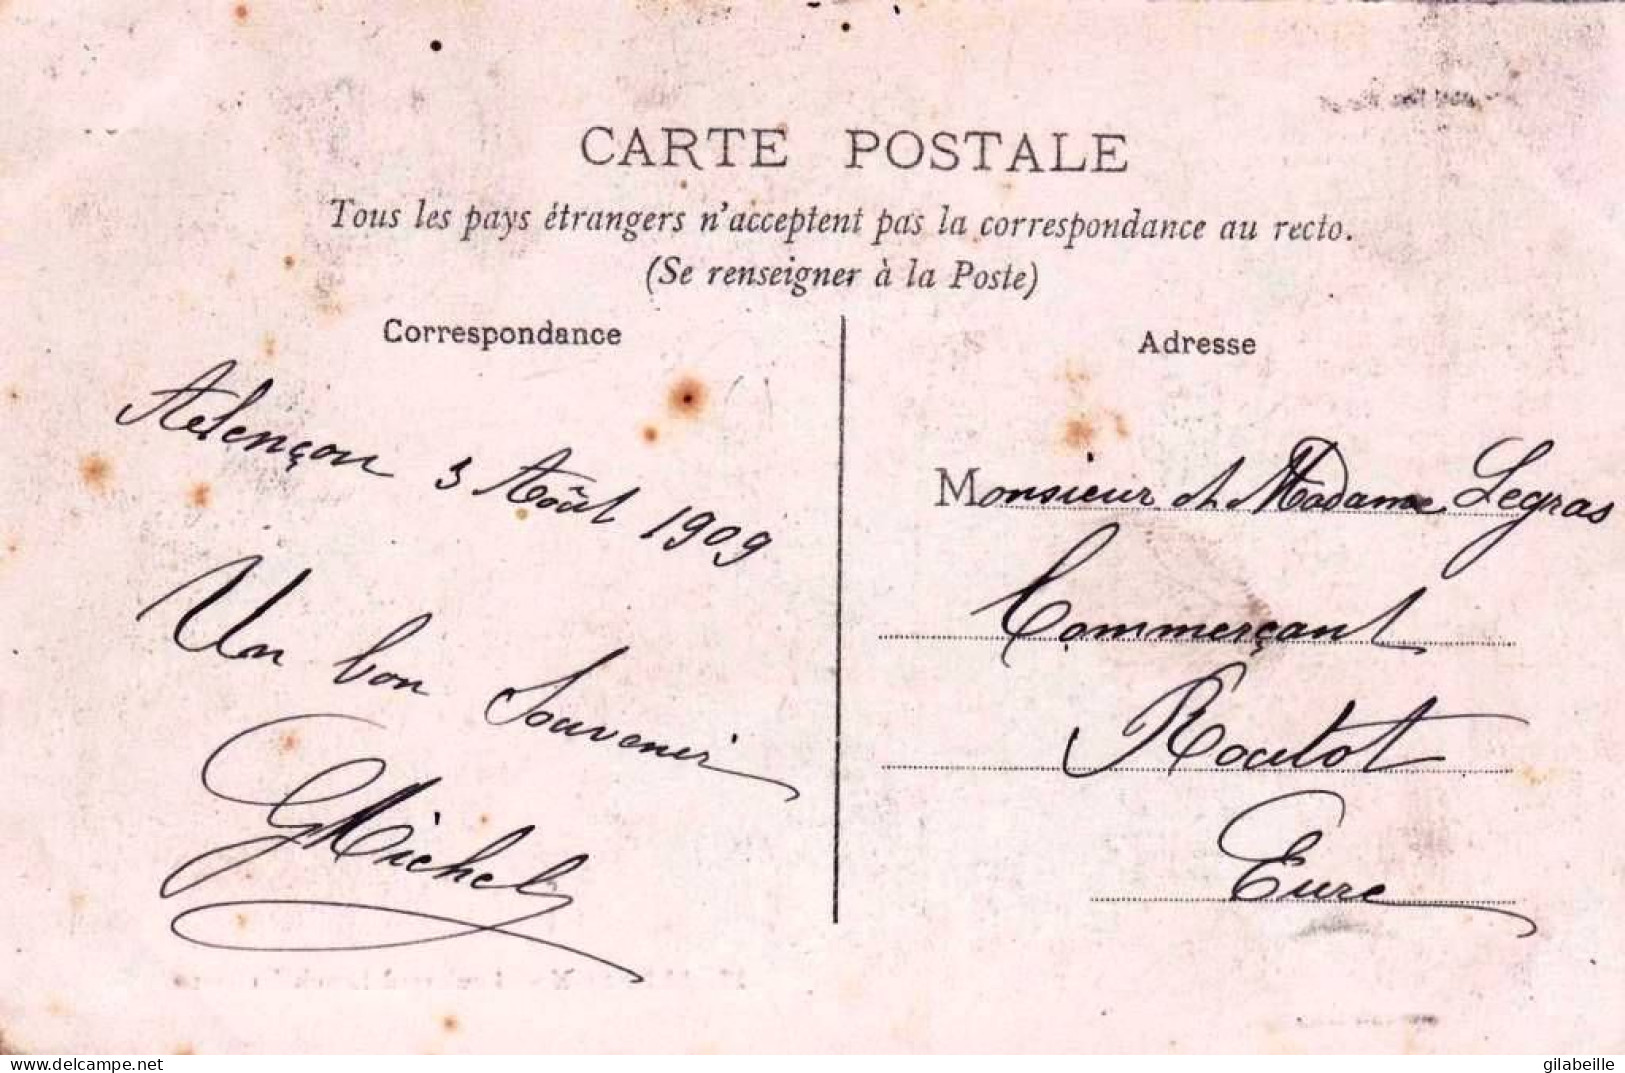 CARTE POSTALE
Tous les pays étrangers n'acceptent pas la correspondance au recto.
(Se renseigner à la Poste)
Correspondance
Alençon 3 Août 1909
Un bon Souvenir
GMichel
Adresse
Monsieur et Madame Legras
Commerçant
Routot
Eure
www.delcampe.net
gilabeille